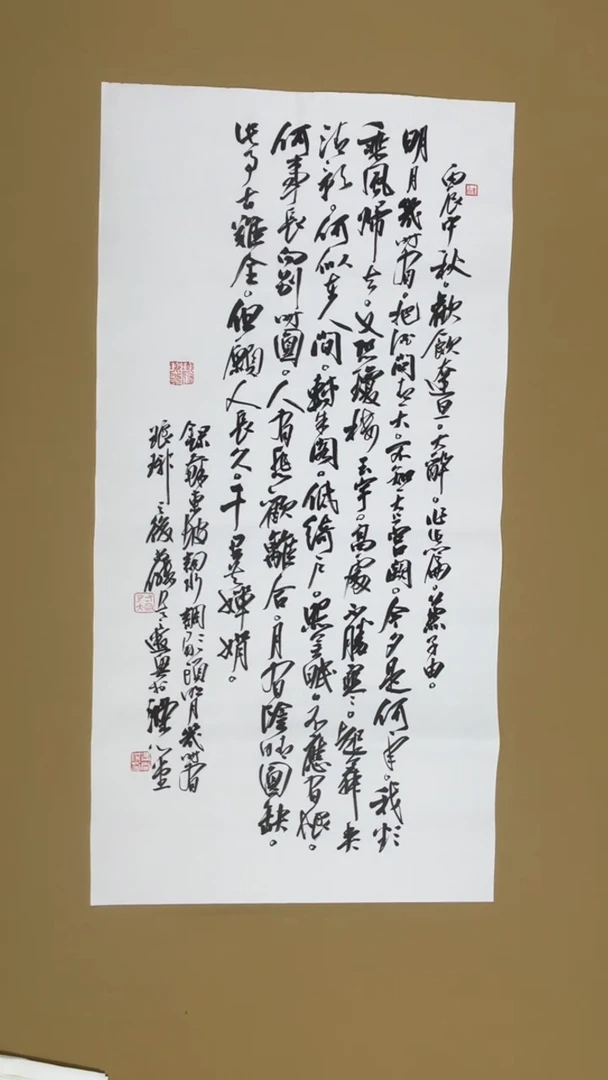 丙辰中秋。歡飲達旦。大醉。作此篇。兼懷子由。
明月幾時有。把酒問青天。不知天上宮闕。今夕是何年。我欲
乘風歸去。又恐瓊樓玉宇。高處不勝寒。起舞弄
清影。何似在人間。轉朱閣。低綺戶。照無眠。不應有恨。
何事長向別時圓。人有悲歡離合。月有陰晴圓缺。
此事古難全。但願人長久。千里共嬋娟。
錄蘇東坡詞水調歌頭明月幾時有